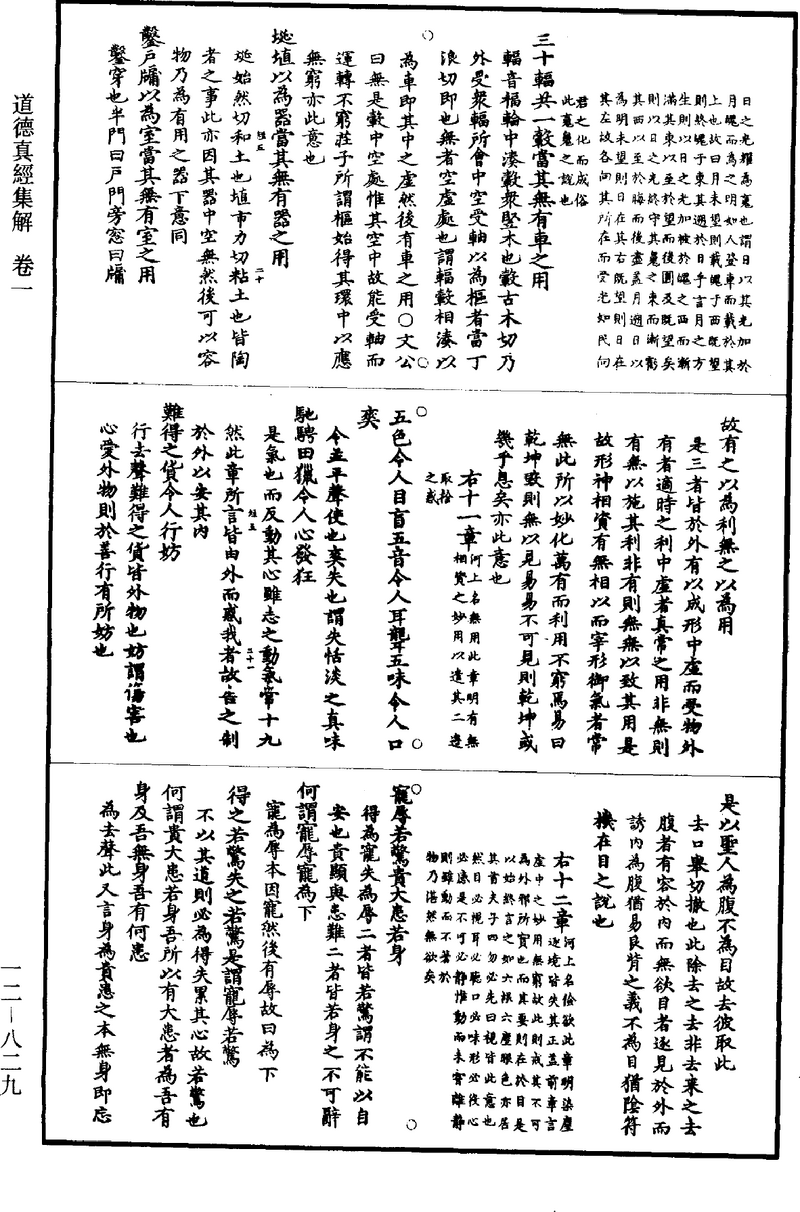 道德真經集解　卷一
日之光耀為魂也謂日以其光加於
月魄而為之明如人登車而載於其
上也故曰月未望則載魄于西既望
則終魄于東其遡於日乎言月之方
生則以日之光加被於魄之西而漸
滿其東以至於望而後圓及既望矣
則以日之光終守其魄之東而漸虧
其西以至於晦而後盡蓋月遡日以
為明未望則日在其右既望則日在
其左故各向其所在而受光如民向
君之化而成俗
此魂魄之說也
三十輻共一轂當其無有車之用
輻音福輪中湊轂眾竪木也轂古木切乃
外受衆輻所會中空受軸以為樞者當丁
浪切即也無者空虛處也謂輻轂相湊以
為車即其中之虛然後有車之用○文公
曰無是轂中空處惟其空中故能受軸而
運轉不窮莊子所謂樞始得其環中以應
無窮亦此意也
埏埴以為器當其無有器之用
埏始然切和土也埴市力切粘土也皆陶
者之事此亦因其器中空無然後可以容
物乃為有用之器下意同
鑿戶牖以為室當其無有室之用
鑿穿也半門曰戶門旁窓曰牖
故有之以為利無之以為用
是三者皆於外有以成形中虛而受物外
有者適時之利中虛者真常之用非無則
有無以施其利非有則無無以致其用是
故形神相資有無相以而宰形御氣者常
無此所以妙化萬有而利用不窮焉易曰
乾坤毀則無以見易易不可見則乾坤或
幾乎息矣亦此意也
右十一章河上名無用此章明有無
相資之妙用以遣其二邊
取捨
之惑
五色令人目盲五音令人耳聾五味令人口
爽
令並平聲使也爽失也謂失恬淡之真味
馳騁田獵令人心發狂
是氣也而反動其心雖志之動氣常十九
然此章所言皆由外而惑我者故告之制
於外以安其內
難得之貨令人行妨
行去聲難得之貨皆外物也妨謂傷害也
心愛外物則於善行有所妨也
是以聖人為腹不為目故去彼取此
去口舉切撤也此除去之去非去來之去
腹者有容於內而無欲目者逐見於外而
誘內為腹猶易艮背之義不為目猶陰符
機在目之說也
右十二章河上名檢欲此章明染塵
逐境皆失其正蓋前章言
虛中之妙用無窮故此則戒其不可
為外邪所實也而其要則在於目是
以始終言之如六根六塵眼色亦居
其首夫子四勿必先曰視皆此意也
然目必視耳必聽口必味形必役心
必慮是不可必靜惟動而未嘗離靜
則雖動而不著於
物乃湛然無欲矣
寵辱若驚貴大患若身
得為寵失為辱二者皆若驚謂不能以自
安也貴顯與患難二者皆若身之不可辭
何謂寵辱寵為下
寵為辱本因寵然後有辱故曰為下
得之若驚失之若驚是謂寵辱若驚
不以其道則必為得失累其心故若驚也
何謂貴大患若身吾所以有大患者為吾有
身及吾無身吾有何患
為去聲此又言身為貴患之本無身即忘
一二－八二九